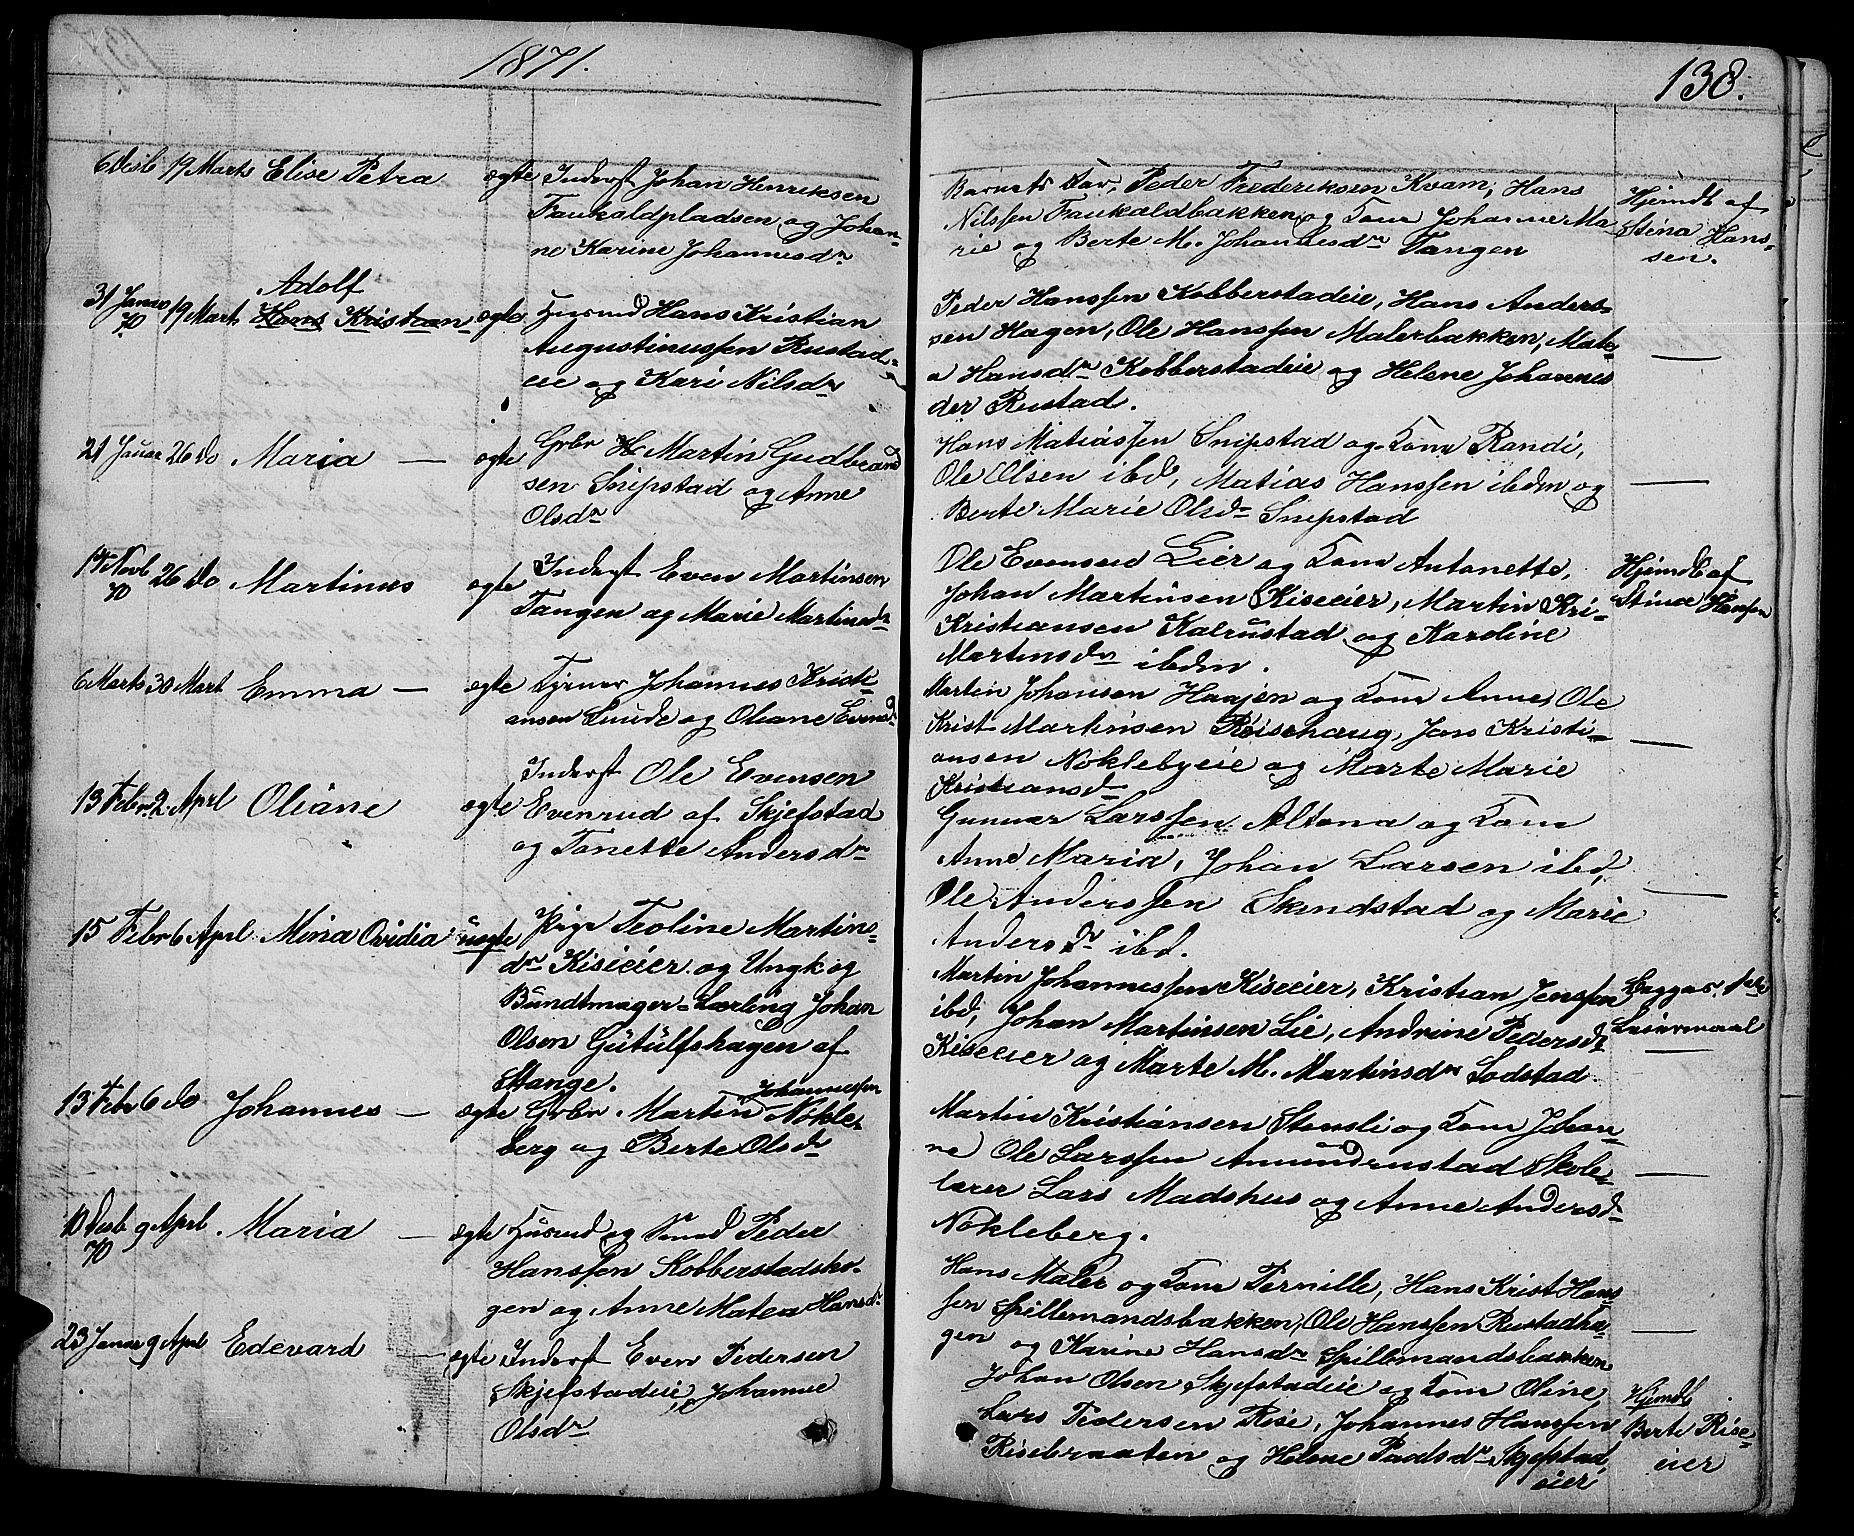 1871.
138.
6 Desb 19 Marts Elise Petra ægte Inderst Johan Henriksen
Faukaldpladsen og Johan-
ne Karine Johannesdr
Barnets Far, Peder Frederiksen Kvam, Hans
Nilssen Faukaldbakken og Kone Johanne Ma-
rie og Berte M. Johannesdr Tangen
Hjemdb af
Stina Hans-
sen.
31 Januar 70 19 Mart Adolf
Hans Kristian ægte Husmd Hans Kristian
Augustinussen Rustad-
eie og Kari Nilsdr
Peder Hanssen Kobberstadeie, Hans Anders-
sen Hagen, Ole Hanssen Malerbakken, Mate-
a Hansdr Kobberstadeie og Helene Johannes
der Rustad.
21 Januar 26 do Maria — ægte Grbr Martin Gudbrand
sen Snipstad og Anne
Olsdr
Hans Matiassen Snipstad og Kone Randi,
Ole Olsen ibd, Matias Hanssen ibdm og
Berte Marie Olsdr Snipstad
14 Novb 70 26 do Martinus ægte Inderst Even Martinsen
Tangen og Marie Martinsdr
Ole Evensen Lier og Kone Antonette,
Johan Martinsen Kiseeier, Martin Kri-
Kristiansen Kalrustad og Karoline
Martinsdr ibdm.
Hjemdb af
Stina Hansen
6 Marts 30 Mart Emma — ægte Johannes Kristi-
ansen Lunde og Oliane Evensdr
Martin Johansen Haajen og Kone Anne, Ole
Krist Martinsen Röisehaug, Jens Kristi-
ansen Noklebyeie og Marte Marie
Kristiansdr
13 Febr. 2 April Oliane ægte Inderst Ole Evensen
Evenrud af Skjefstad
og Tonette Andersdr
Gunnar Larssen Altona og Kone
Anne Maria, Johan Larsen ibd,
Ole Anderssen Skindstad og Marie
Andersdr ibd.
15 Febr 6 April Mina Ovidia uægte Pige Teoline Martins-
dr Kiseeier og Ungk og
Bundtmager-Lærling Johan
Olsen Gütülfshagen af
Stange.
Martin Johannessen Kiseeier, Kristian Jenssen
ibd, Johan Martinsen Lie, Andrine Pedersdr
Kiseeier og Marte M. Martinsdr Lodstad
Begges 1ste
Leiermaal
13 Febr 6 do Johannes — ægte Grbr. Martin Johannessen Nökle-
berg og Berte Olsdr
Martin Kristiansen Stensli og Kone Johan-
ne Ole Larssen Amundrustad Skole-
lærer Lars Madshus og Anne Andersdr
Nokleberg.
10 Desb 70 9 April Maria — ægte Husmd og Smed Peder
Hanssen Kobberstadsko-
gen og Anne Matea Hansdr
Hans Maler og Kone Pernille, Hans Krist Hans-
sen Spillemandsbakken, Ole Hanssen Rustadha-
gen og Karine Hansdr Spillemandsbakken
23 Januar 9 April Edevard — ægte Inderst Even Pedersen
Skjefstadeie, Johanne
Olsdr
Johan Olsen Skjefstadeie og Kone Oline,
Lars Pedersen Rise, Johannes Hanssen
Risebraaten og Helene Paulsdr Skjefstad
eier
Hjemdb
Berte Rise-
eier